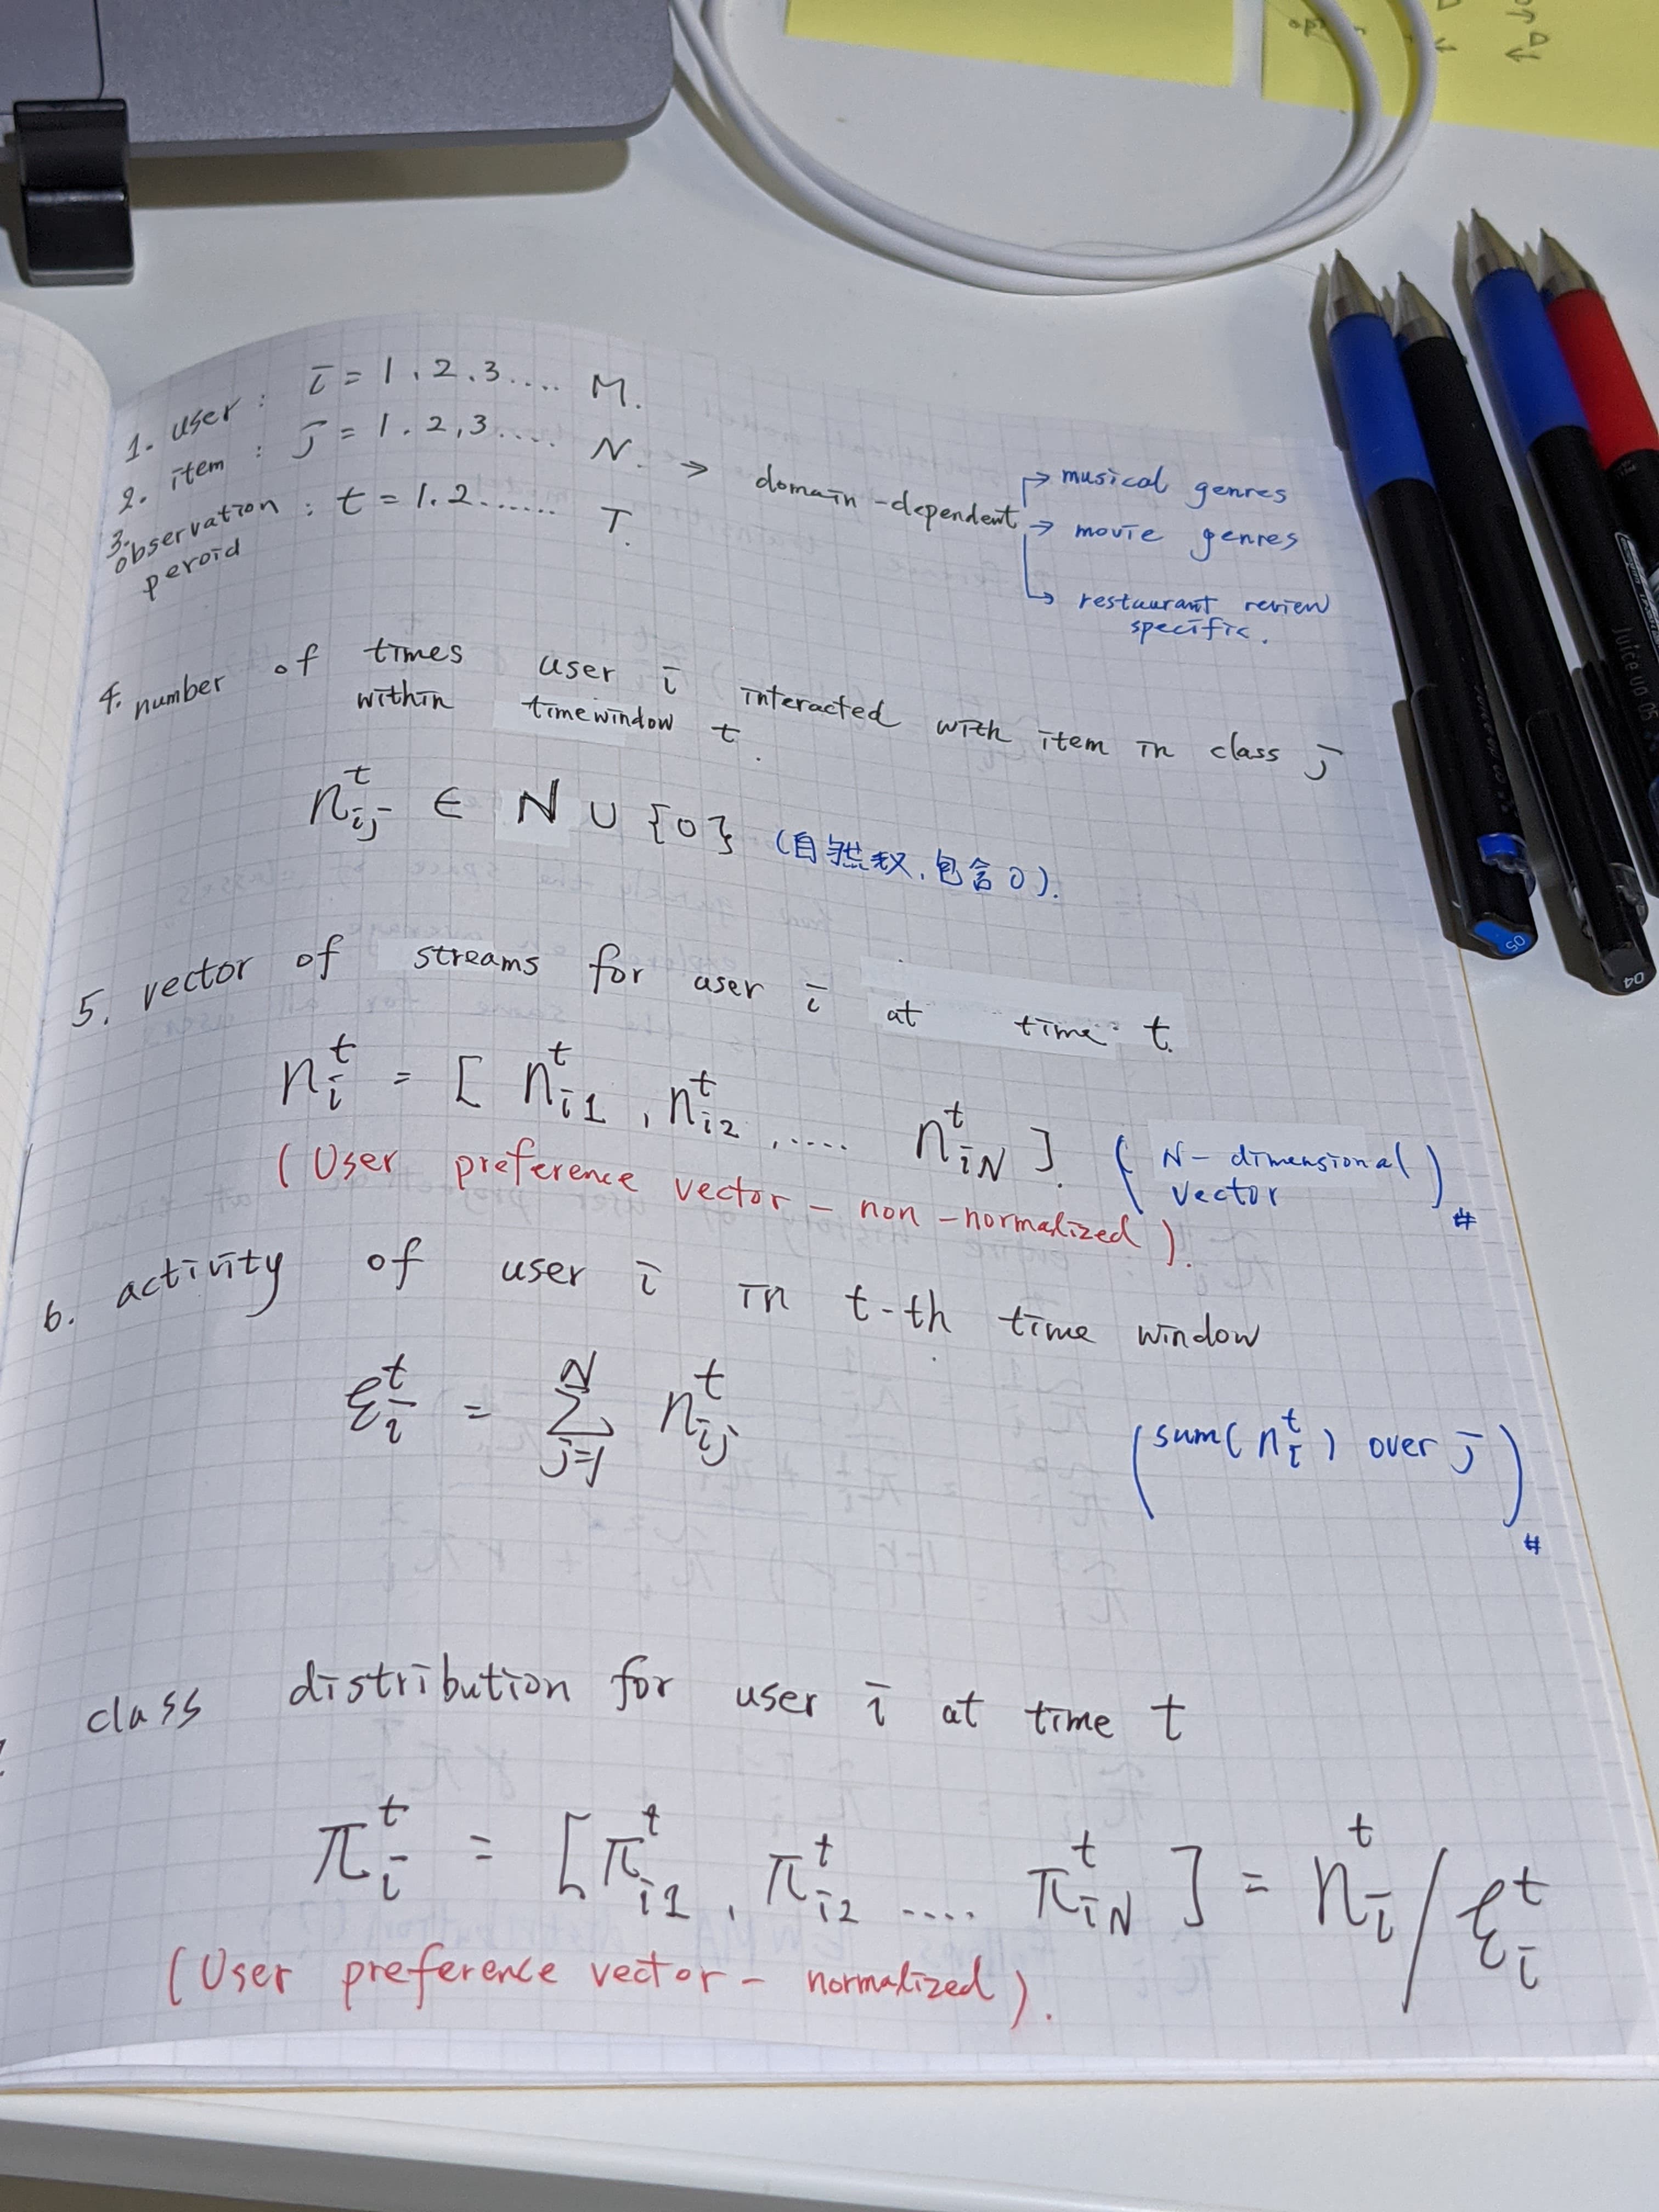 1. user : i = 1, 2, 3 .... M.
2. item : j = 1, 2, 3 .... N. → domain-dependent
→ musical genres
→ movie genres
→ restaurant review
specific.
3. observation : t = 1. 2 ...... T.
peroid
4. number of times user i interacted with item in class j
within timewindow t.
n_{ij}^t ∈ N ∪ {0} (自然数,包含0).
5. vector of streams for user i at time t.
n_i^t = [ n_{i1}^t , n_{i2}^t , .... n_{iN}^t ].
(N-dimensional
vector) #
(User preference vector - non-normalized).
6. activity of user i in t-th time window
ξ_i^t = ∑_{j=1}^N n_{ij}^t (sum(n_i^t) over j) #
class distribution for user i at time t
π_i^t = [π_{i1}^t , π_{i2}^t .... π_{iN}^t ] = n_i^t / ξ_i^t
(User preference vector - normalized).
Juice up 05
05
04